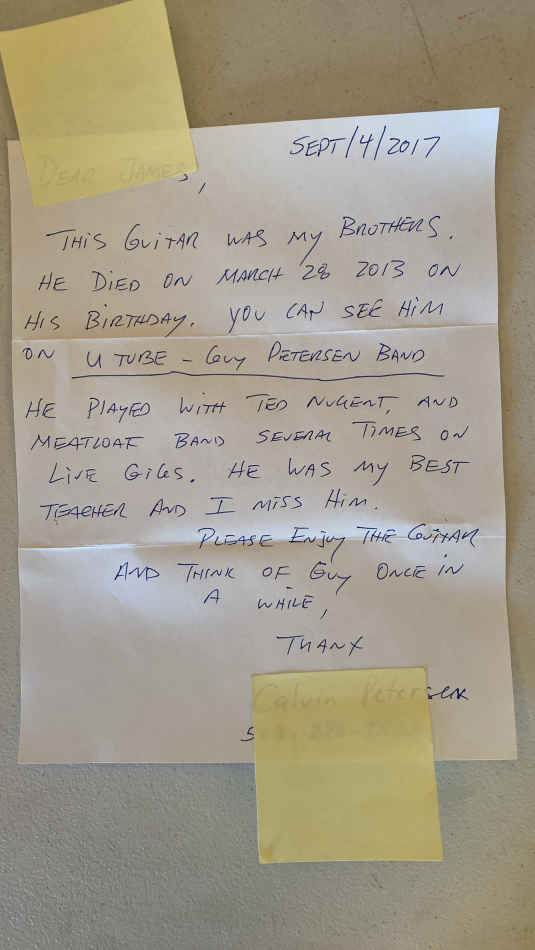 SEPT/4/2017
DEAR JAMES,
THIS GUITAR WAS MY BROTHERS.
HE DIED ON MARCH 28 2013 ON
HIS BIRTHDAY. YOU CAN SEE HIM
ON U TUBE - GUY PETERSEN BAND
HE PLAYED WITH TED NUGENT, AND
MEATLOAF BAND SEVERAL TIMES ON
LIVE GIGS. HE WAS MY BEST
TEACHER AND I MISS HIM.
PLEASE ENJOY THE GUITAR
AND THINK OF GUY ONCE IN
A WHILE,
THANX
Calvin Petersen